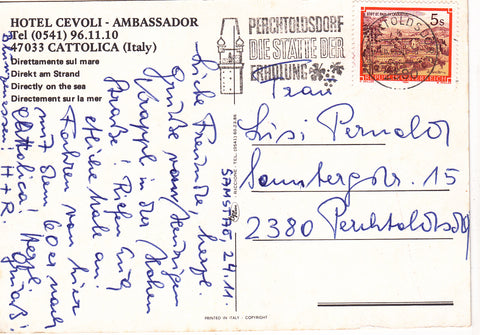 HOTEL CEVOLI - AMBASSADOR
Tel (0541) 96.11.10
47033 CATTOLICA (Italy)
Direttamente sul mare
Direkt am Strand
Directly on the sea
Directement sur la mer
PERCHTOLDSDORF
DIE STÄTTE DER
ERHOLUNG
5s
SAMSTAG, 24.11.
Liebe Freunde, herzl.
Grüße vom heurigen
in der Hohen
Straße! Riefen Euch
etliche Male an.
Fahren von hier
mit dem 60er nach
Cattolica! Herzl.
Grüße!
H+R.
Frau
Lisi Pernalor
Sonnbergstr. 15
2380 Perchtoldsdf
PRINTED IN ITALY - COPYRIGHT